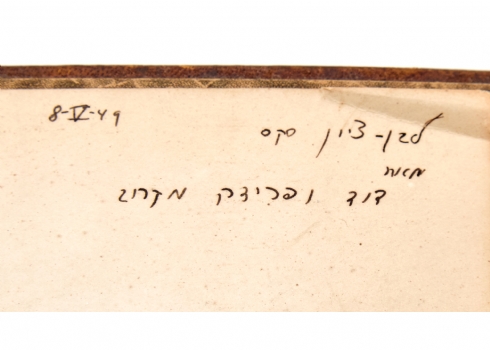 8-IV-49
לבן-ציון סקס
מאת
דוד ופרידה מקרוב